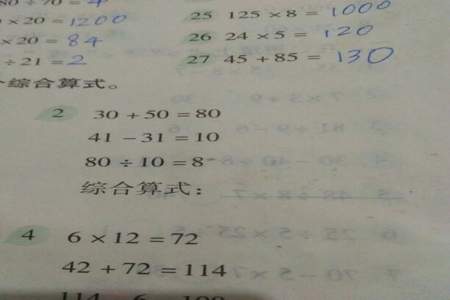 80 ÷ 70 = 4
× 20 = 1200
25 125 × 8 = 1000
× 20 = 84
26 24 × 5 = 120
÷ 21 = 2
27 45 + 85 = 130
综合算式。
2 30 + 50 = 80
41 － 31 = 10
80 ÷ 10 = 8
综合算式：
4 6 × 12 = 72
42 + 72 = 114